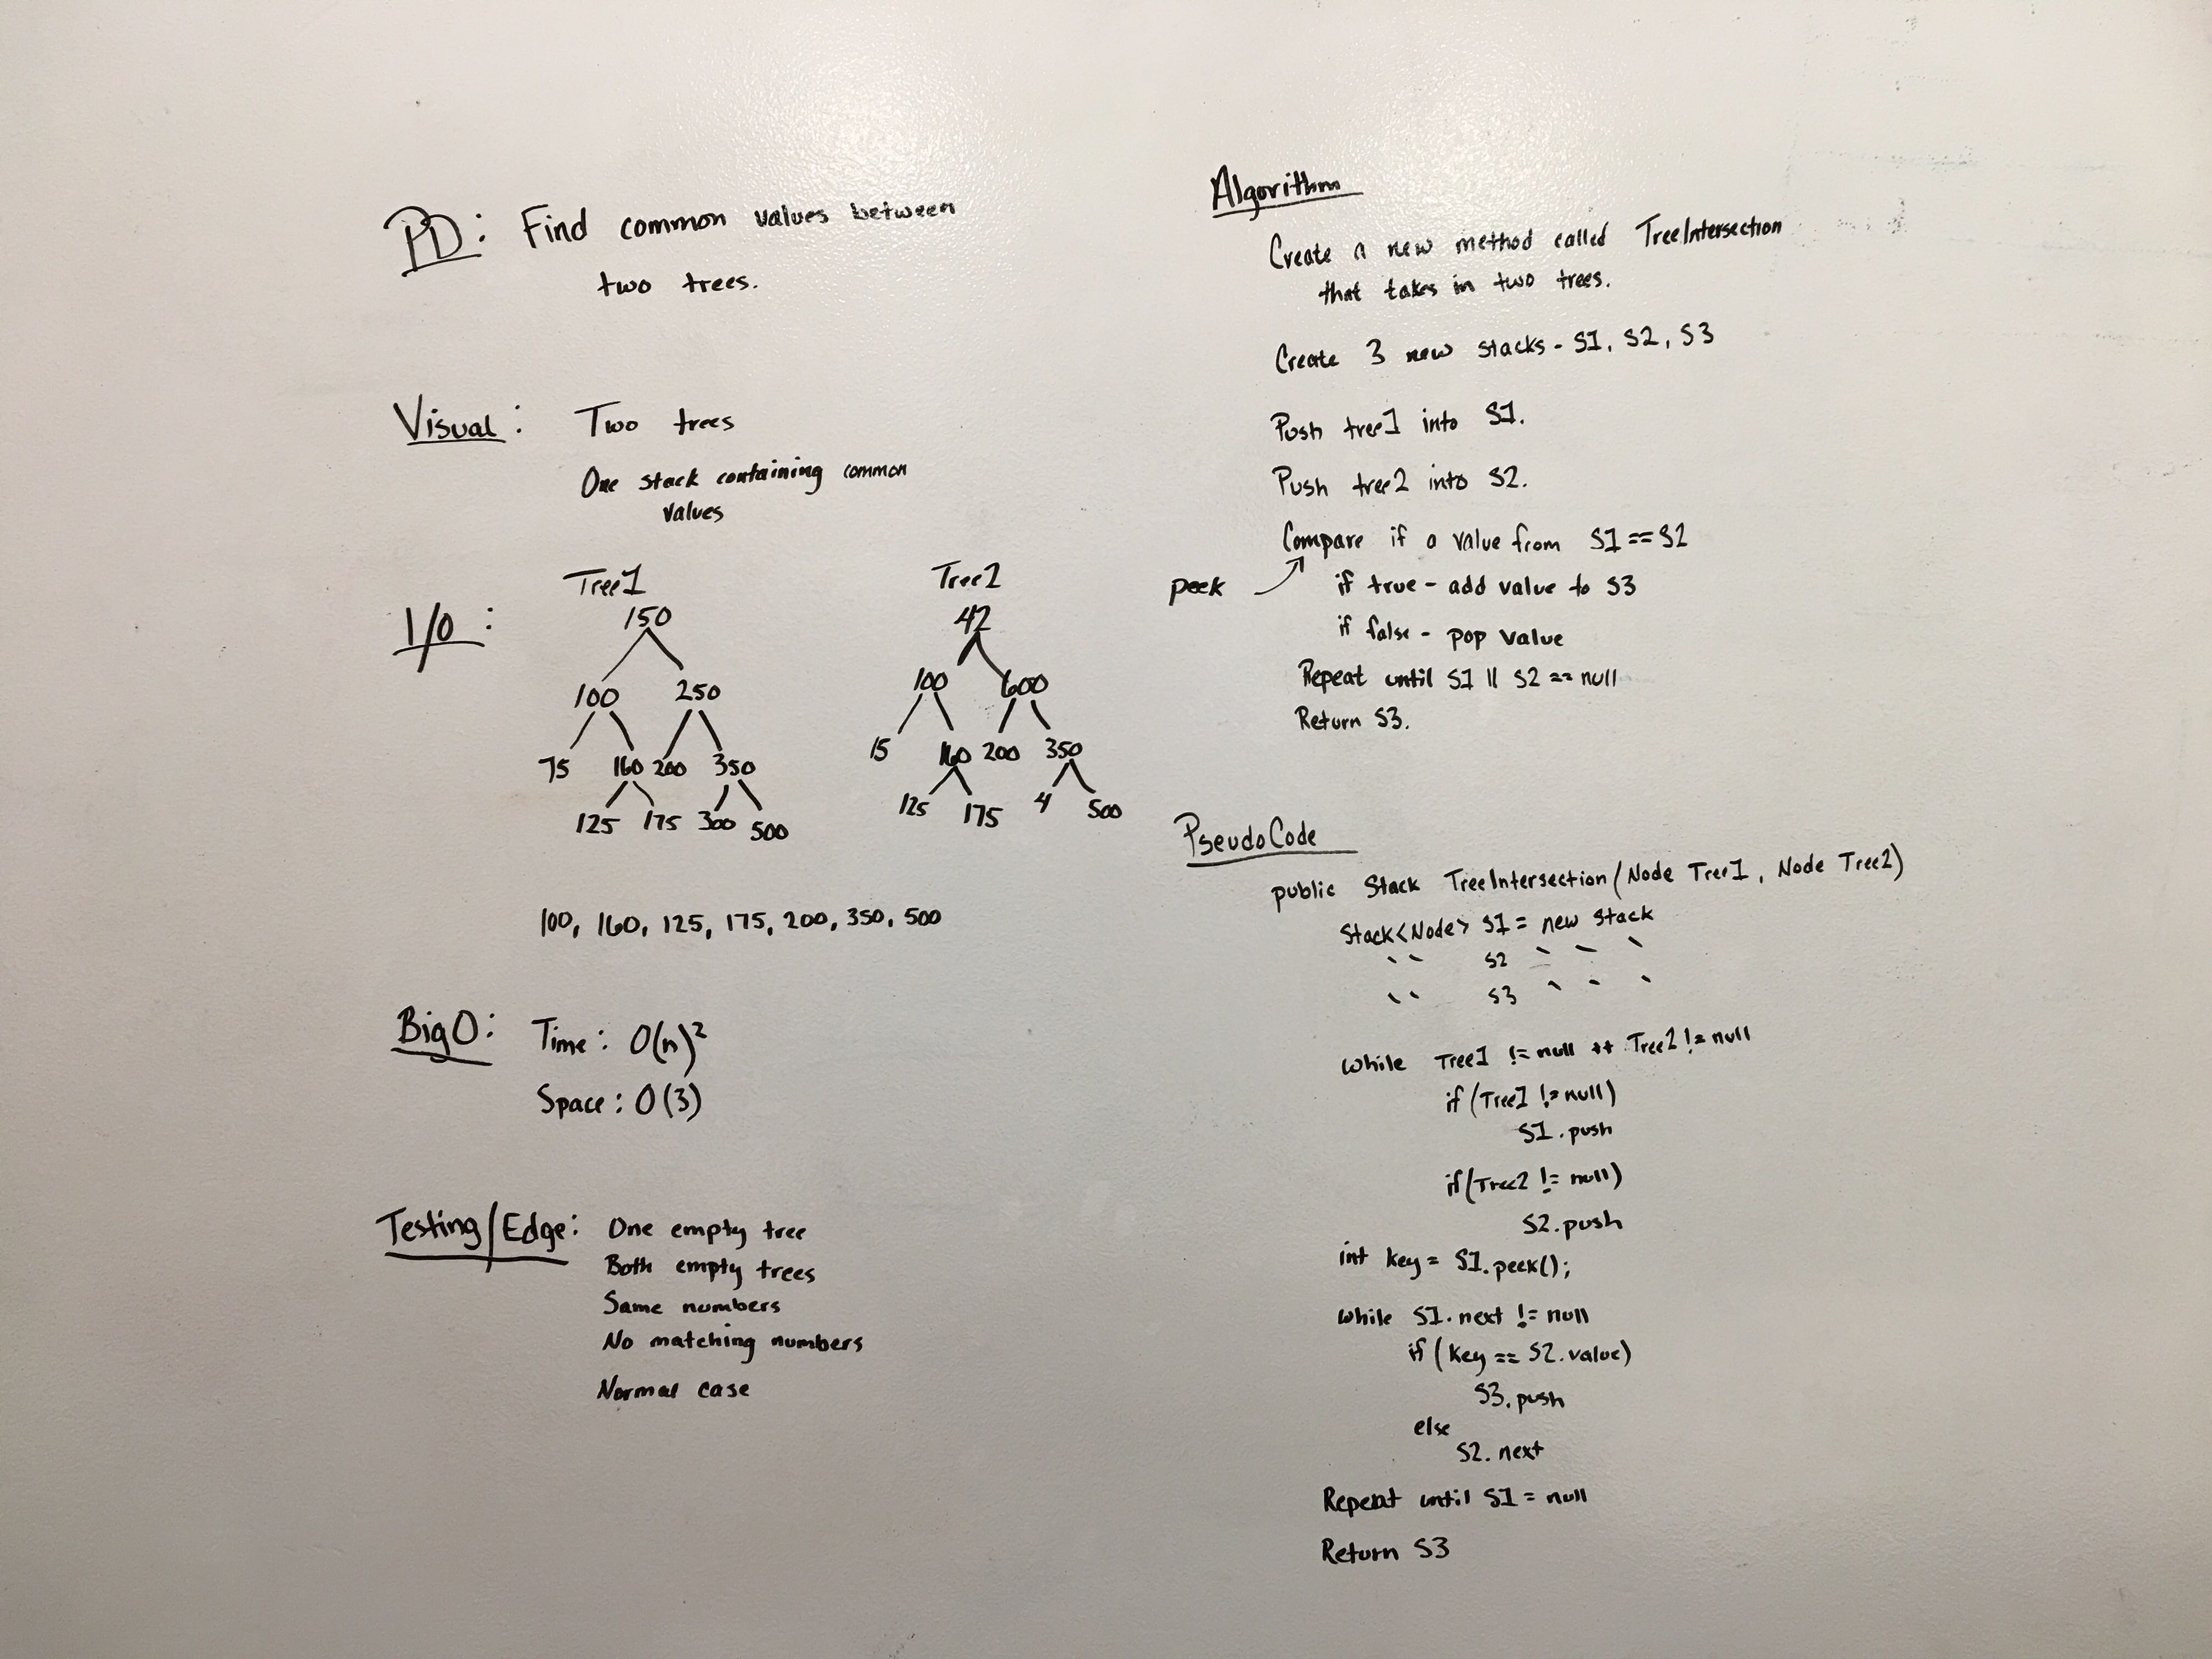 PD: Find common values between
two trees.
Visual: Two trees
One stack containing common
values
I/O:
Tree1
150
100 250
75 160 200 350
125 175 300 500
Tree2
42
100 600
15 160 200 350
125 175 4 500
100, 160, 125, 175, 200, 350, 500
Big O: Time: O(n)²
Space: O(3)
Testing/Edge: One empty tree
Both empty trees
Same numbers
No matching numbers
Normal case
Algorithm
Create a new method called TreeIntersection
that takes in two trees.
Create 3 new stacks - S1, S2, S3
Push tree1 into S1.
Push tree2 into S2.
Compare if a value from S1 == S2
peek
if true - add value to S3
if false - pop value
Repeat until S1 || S2 == null
Return S3.
PseudoCode
public Stack TreeIntersection(Node Tree1, Node Tree2)
Stack<Node> S1 = new stack
S2
S3
while Tree1 != null ++ Tree2 != null
if (Tree1 != null)
S1.push
if (Tree2 != null)
S2.push
int key = S1.peek();
while S1.next != null
if (key == S2.value)
S3.push
else
S2.next
Repeat until S1 = null
Return S3